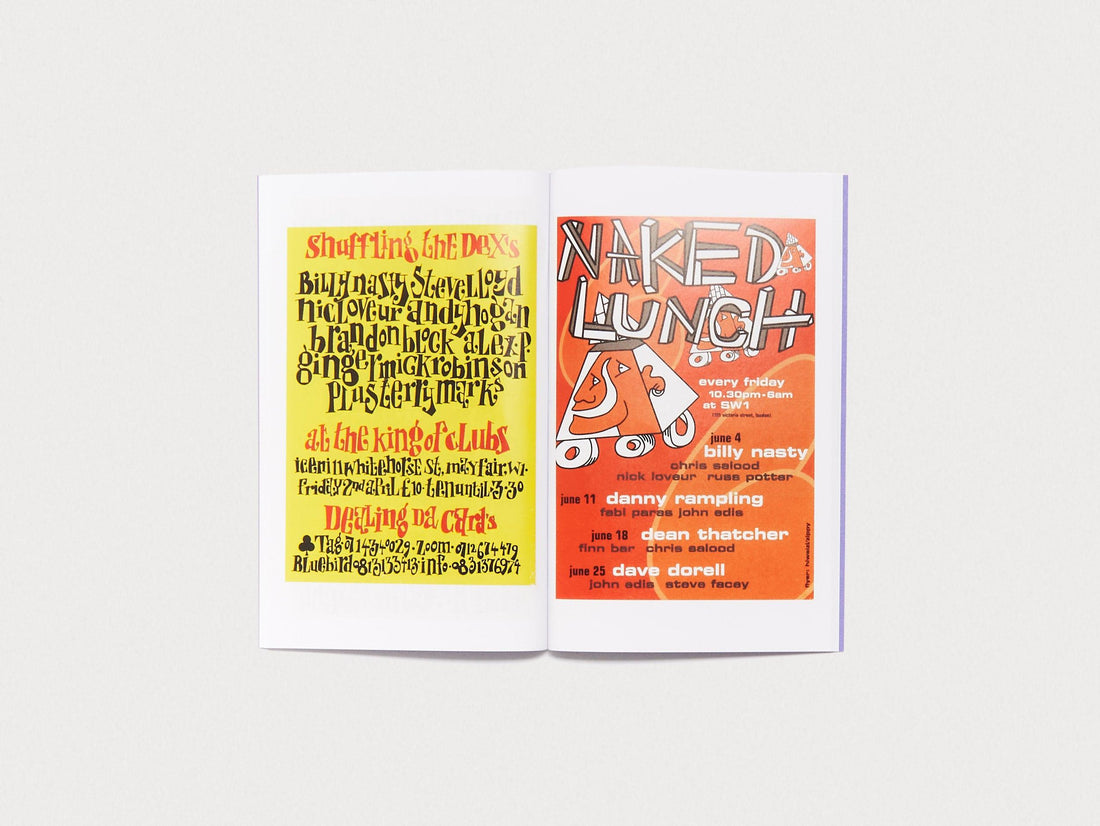 Shuffling the Dex's
Billy nasty Steve Lloyd
nic Loveur andy hogan
brandon block alex P
ginger mick robinson
Plus terry marks
at the king of clubs
iceni 11 whitehorse St, mayfair. W1.
Friday 2nd april £10. ten until 3.30
Dealing Da Card's
Bluebird info
NAKED
LUNCH
every friday
10.30pm-6am
at SW1
(191 victoria street, london)
june 4
billy nasty
chris salood
nick loveur russ potter
june 11 danny rampling
fabi paras john edis
june 18 dean thatcher
finn bar chris salood
june 25 dave dorell
john edis steve facey